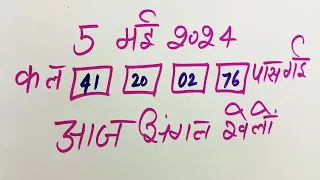 5 मई 2024
कल 41 20 02 76 पास गई
आज सिंगल खेलों